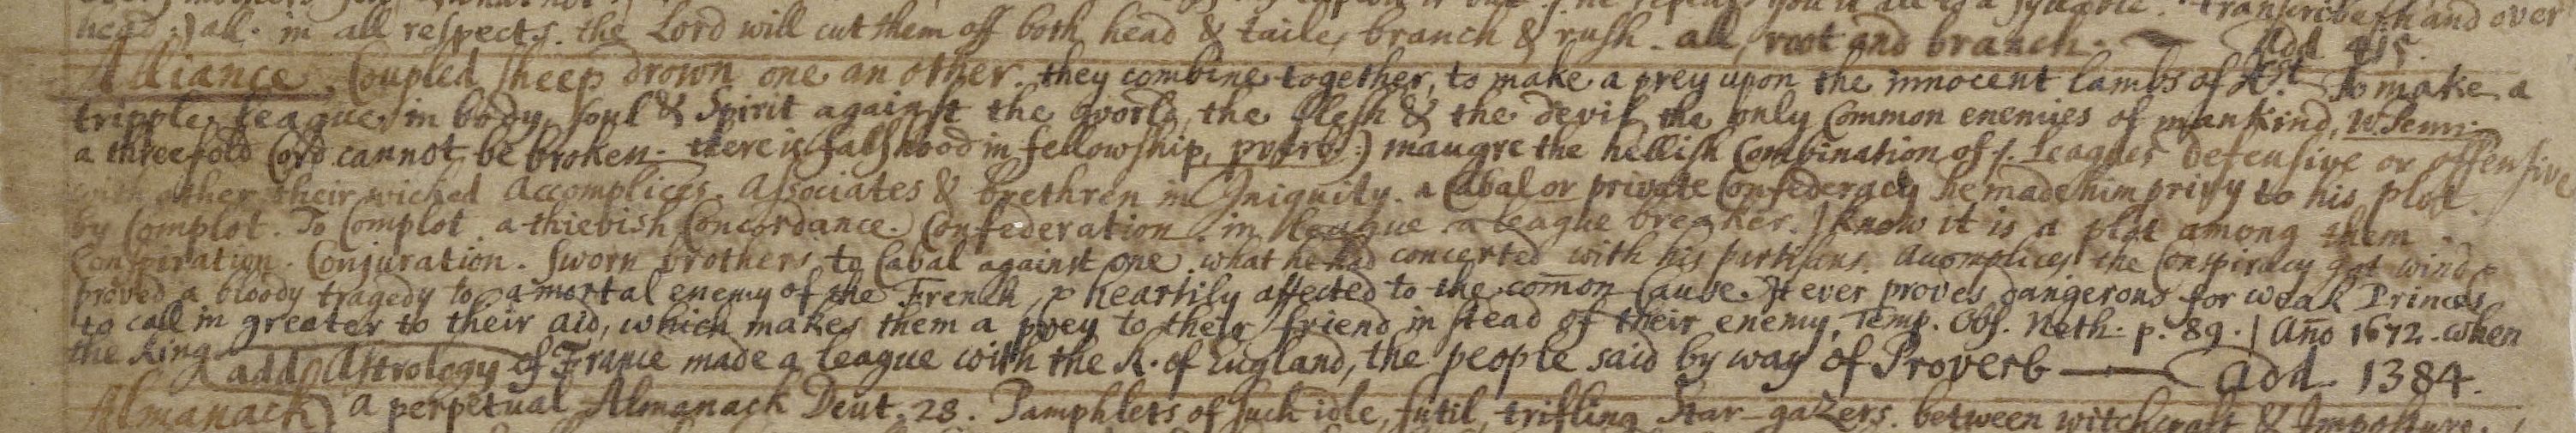 head :) all. in all respects. the Lord will cut them off both head & taile, branch & rush. all, root and branch. Add 415.
Alliance. Coupled sheep drown one an other. they combine together, to make a prey upon the innocent lambs of Xst. To make a
tripple league, in body, soul & Spirit against the world, the flesh & the devil, the only Common enemies of mankind, W. Penn.
a threefold Cord cannot be broken. there is falshood in fellowship, proverb.) maugre the hellish Combination of s. Leagues defensive or offensive
with other their wicked Accomplices. Associates & brethren in Iniquity. a Cabal or private Confederacy he made him privy to his plot.
by Complot. To Complot. a thievish Concordance. Confederation. in league a league breaker. I know it is a plot among them
Conspiration. Conjuration. sworn brothers, to Cabal against one. what he had concerted with his partisans. Acomplices the Conspiracy got wind &
proved a bloody tragedy to a mortal enemy of the French, & heartily affected to the comon Cause. It ever proves dangerous for weak Princes
to call in greater to their aid, which makes them a prey to their friend in stead of their enemy, Temp. Obs. Neth. p. 89. | Año 1672. when
the King of France made a league with the K. of England, the people said by way of Proverb — add 1384.
add Astrology
Almanack) a perpetual Almanack Deut. 28. Pamphlets of such idle, futil, trifling Star-gazers. between witchcraft & Imposture.